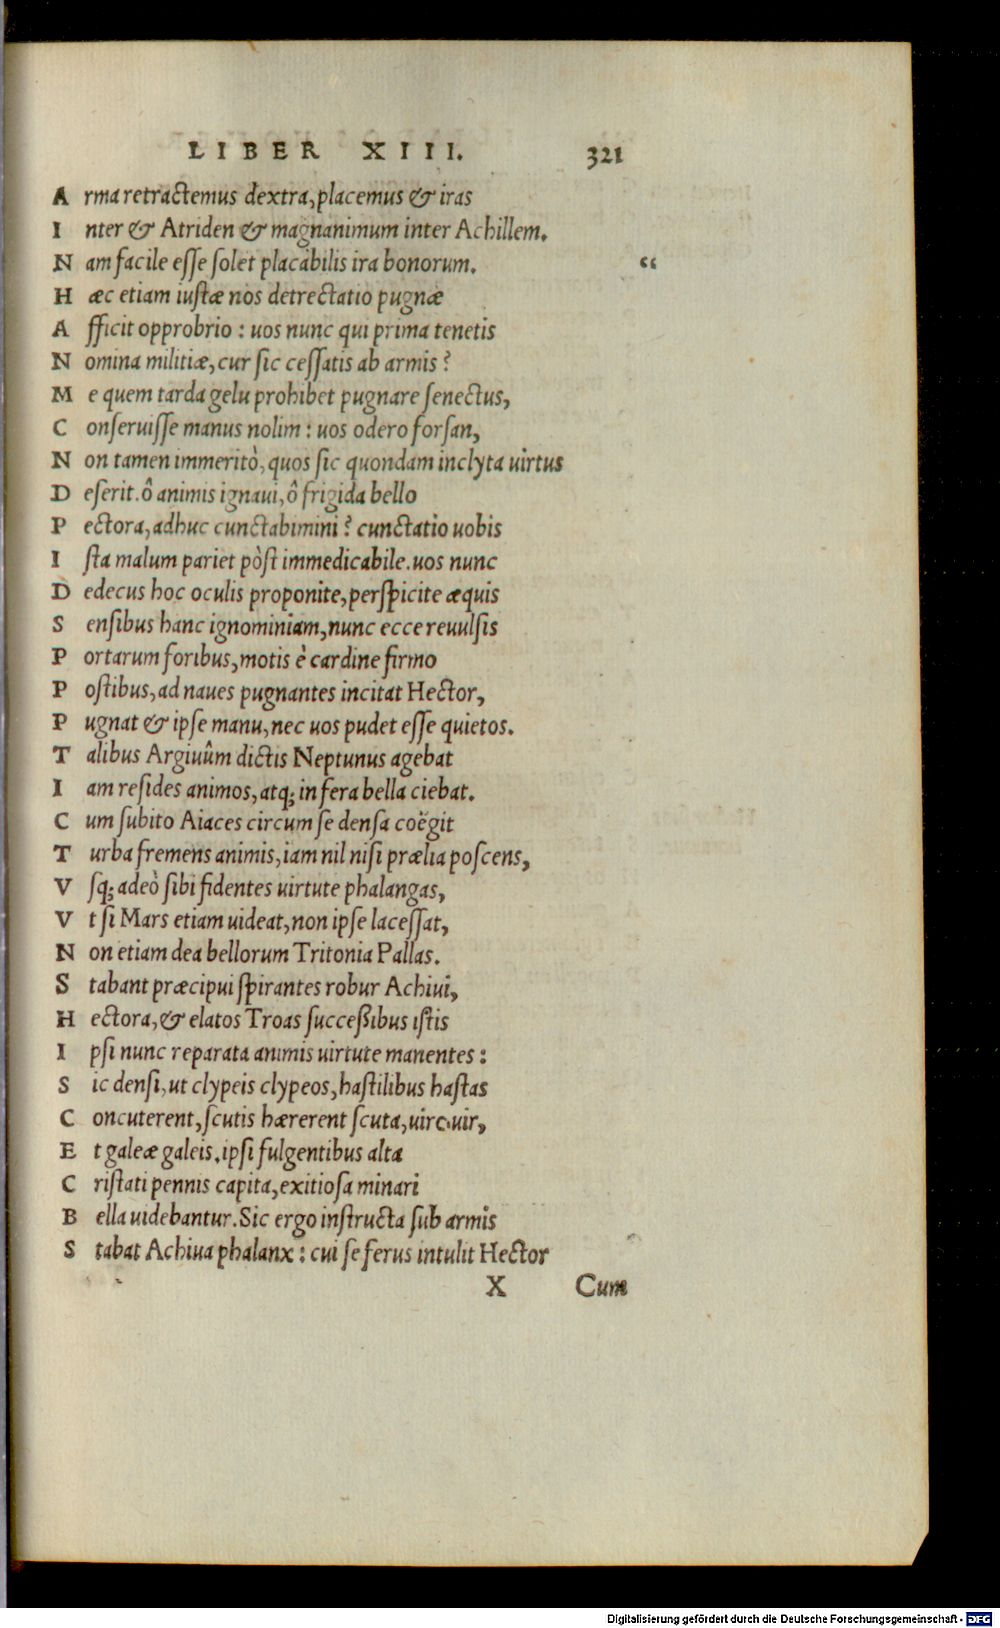 LIBER XIII. 321
Arma retractemus dextra, placemus & iras
Inter & Atriden & magnanimum inter Achillem.
Nam facile eſſe ſolet placabilis ira bonorum. “
Hæc etiam iuſtæ nos detrectatio pugnæ
Afficit opprobrio : uos nunc qui prima tenetis
Nomina militiæ, cur ſic ceſſatis ab armis ?
Me quem tarda gelu prohibet pugnare ſenectus,
Conſeruiſſe manus nolim : uos odero forſan,
Non tamen immeritò, quos ſic quondam inclyta uirtus
Deſerit. ô animis ignaui, ô frigida bello
Pectora, adhuc cunctabimini ? cunctatio uobis
Iſta malum pariet pòſt immedicabile. uos nunc
Dedecus hoc oculis proponite, perſpicite æquis
Senſibus hanc ignominiam, nunc ecce reuulſis
Portarum foribus, motis è cardine firmo
Poſtibus, ad naues pugnantes incitat Hector,
Pugnat & ipſe manu, nec uos pudet eſſe quietos.
Talibus Argiuûm dictis Neptunus agebat
Iam reſides animos, atq; in fera bella ciebat.
Cum ſubito Aiaces circum ſe denſa coëgit
Turba fremens animis, iam nil niſi prælia poſcens,
Vſq; adeò ſibi fidentes uirtute phalangas,
Vt ſi Mars etiam uideat, non ipſe laceſſat,
Non etiam dea bellorum Tritonia Pallas.
Stabant præcipui ſpirantes robur Achiui,
Hectora, & elatos Troas ſucceßibus iſtis
Ipſi nunc reparata animis uirtute manentes :
Sic denſi, ut clypeis clypeos, haſtilibus haſtas
Concuterent, ſcutis hærerent ſcuta, uiro uir,
Et galeæ galeis. ipſi fulgentibus alta
Criſtati pennis capita, exitioſa minari
Bella uidebantur. Sic ergo inſtructa ſub armis
Stabat Achiua phalanx : cui ſe ferus intulit Hector
X Cum
Digitalisierung gefördert durch die Deutsche Forschungsgemeinschaft - DFG